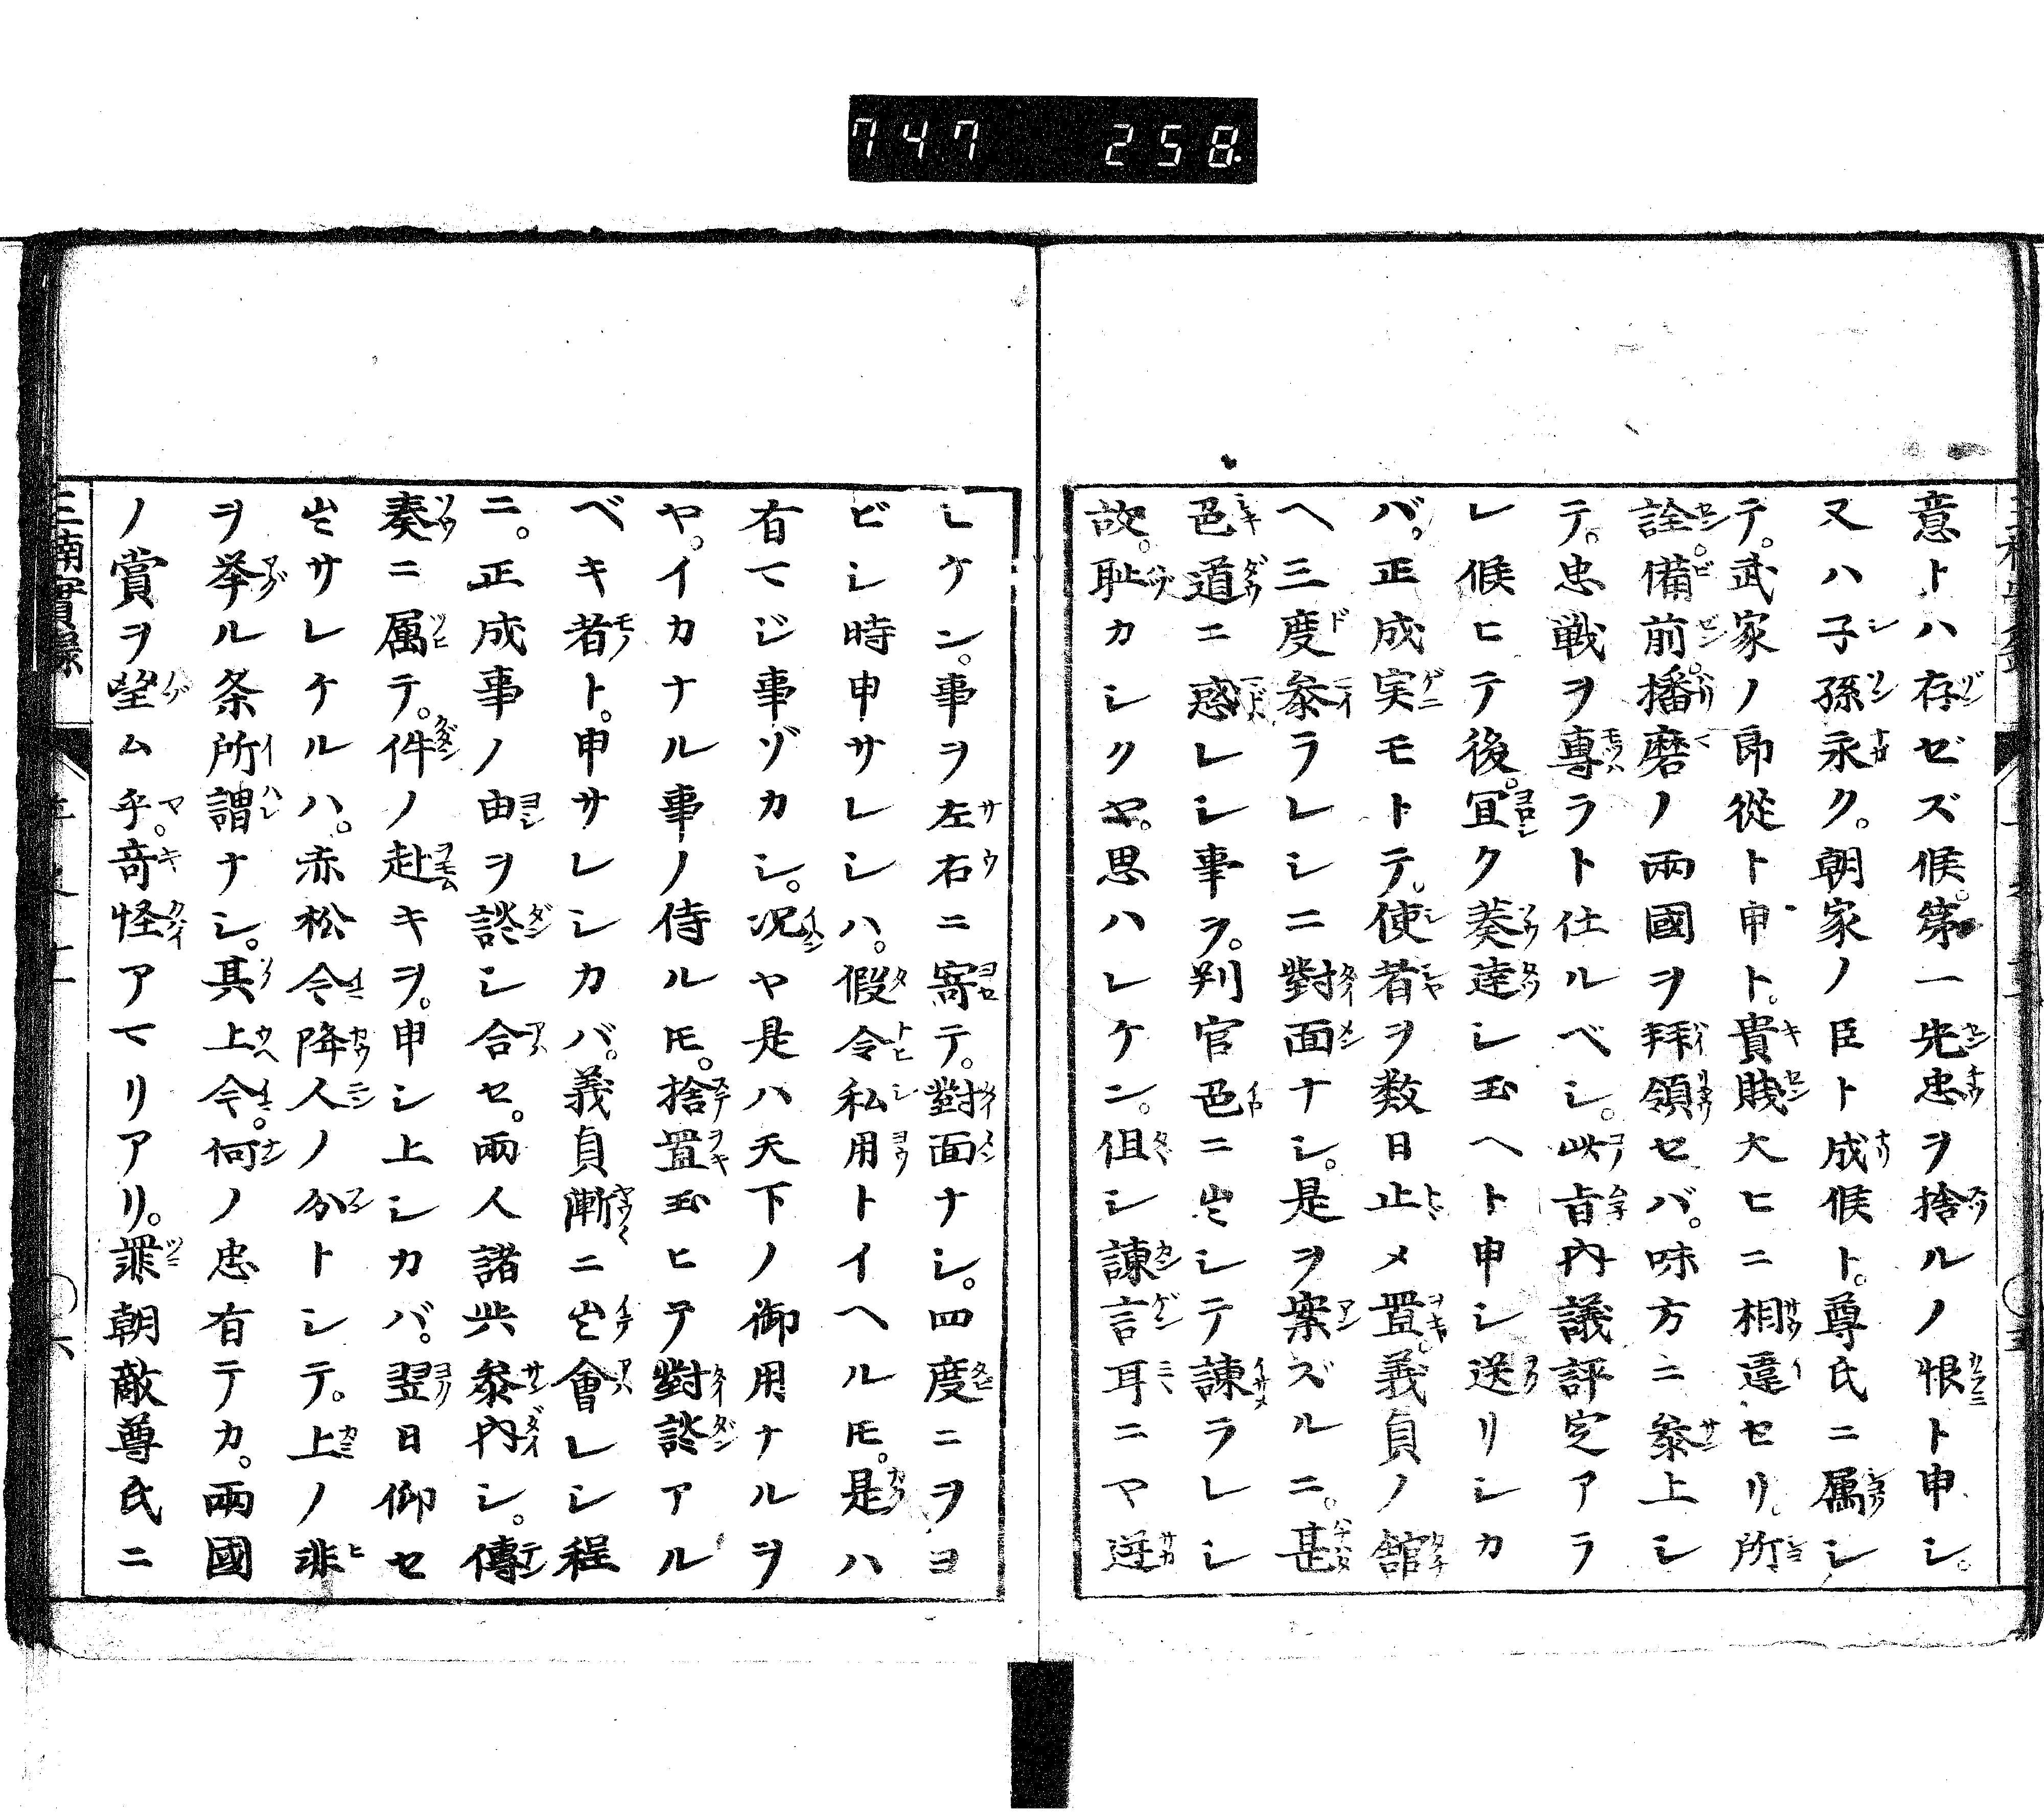 747 258.
意トハ存ゼズ候。第一先忠ヲ捨ルノ恨ト申シ。
又ハ子孫永ク。朝家ノ臣ト成候ト。尊氏ニ属シ
テ。武家ノ郎從ト申ト。貴賤大ヒニ相違セリ。所
詮。備前。播磨ノ兩國ヲ拜領セバ。味方ニ参上シ
テ。忠戦ヲ專ラト仕ルベシ。此旨内議評定アラ
レ候ヒテ後。宜ク奏達シ玉ヘト申シ送リシカ
バ。正成実モトテ。使者ヲ数日止メ置。義貞ノ館
ヘ三度参ラレシニ對面ナシ。是ヲ案ズルニ。甚
色道ニ惑レシ事ラ。判官色ニ出シテ諫ラレシ
故。耻カシクヤ。思ハレケン。但シ諫言耳ニマ逆
レケン。事ヲ左右ニ寄テ。對面ナシ。四度ニヲヨ
ビシ時申サレシハ。假令私用トイヘルトモ。是ハ
有マジ事ゾカシ。况ヤ是ハ天下ノ御用ナルヲ
ヤ。イカナル事ノ侍ルトモ。捨置玉ヒテ對談アル
ベキ者ト。申サレシカバ。義貞漸ニ出會レシ程
ニ。正成事ノ由ヲ談シ合セ。兩人諸共参内シ。傳
奏ニ属テ。件ノ赴キヲ。申シ上シカバ。翌日仰セ
出サレケルハ。赤松今降人ノ分トシテ。上ノ非
ヲ挙ル条所謂ナシ。其上今。何ノ忠有テカ。兩國
ノ賞ヲ望ム乎。奇怪アマリアリ。罪朝敵尊氏ニ
三楠實録
六